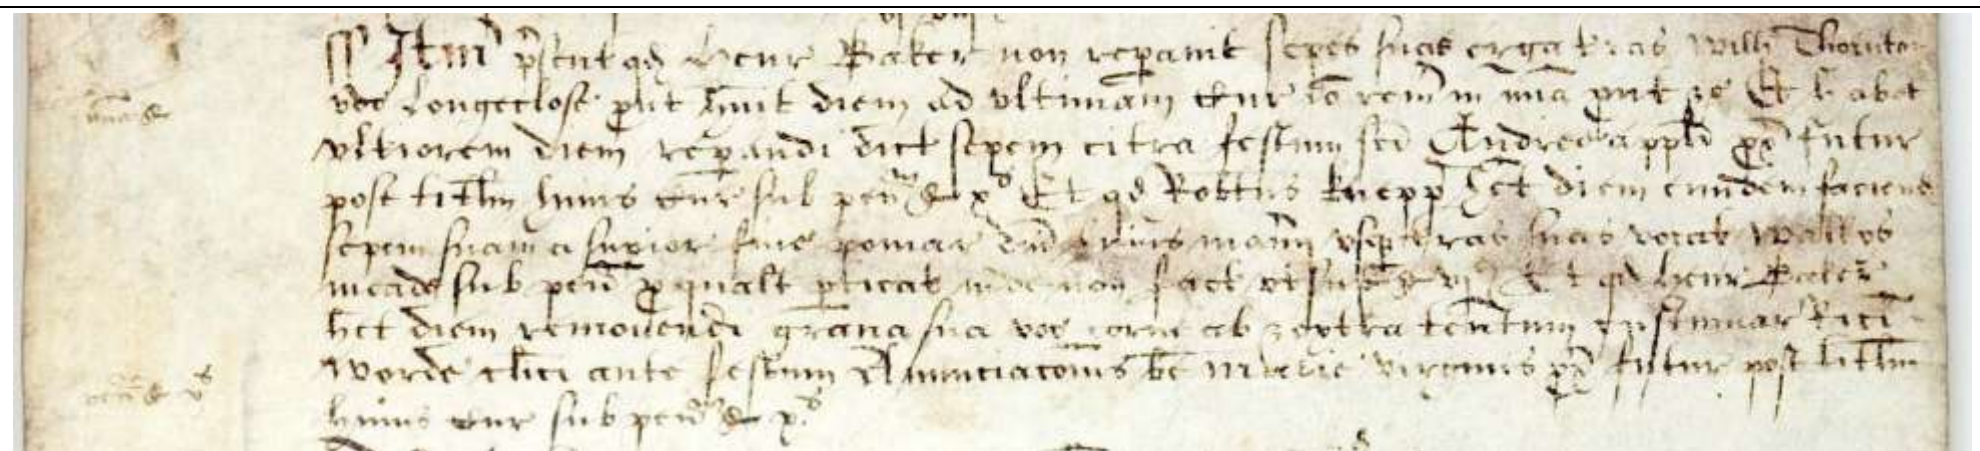 Itm p'sent qd Henr Baker non repavit sepes suas erga t'ras Willi Thornton
voc Longeclose put huit diem ad ultimam Cur io rem in mia put 
Et habet
ultiorem diem repandi dict sepem citra festum sci Andree appli px futur
post titlm huius Cur sub pen xs Et qd Robtus Knepp het diem eundem faciend
sepem suam a supior fine pomar dni huius manii usq t'ras suas vocat Walles
meade sub pen p qualt pticat inde non fact ut sup vjd Et qd Henr Baker
het diem removendi grana sua voc corne ab extra tentum custumar Rici
Worde clici ante festum Annunciaconis be Marie virginis px futur post titlm
huius Cur sub pen xs
mia
pen vs